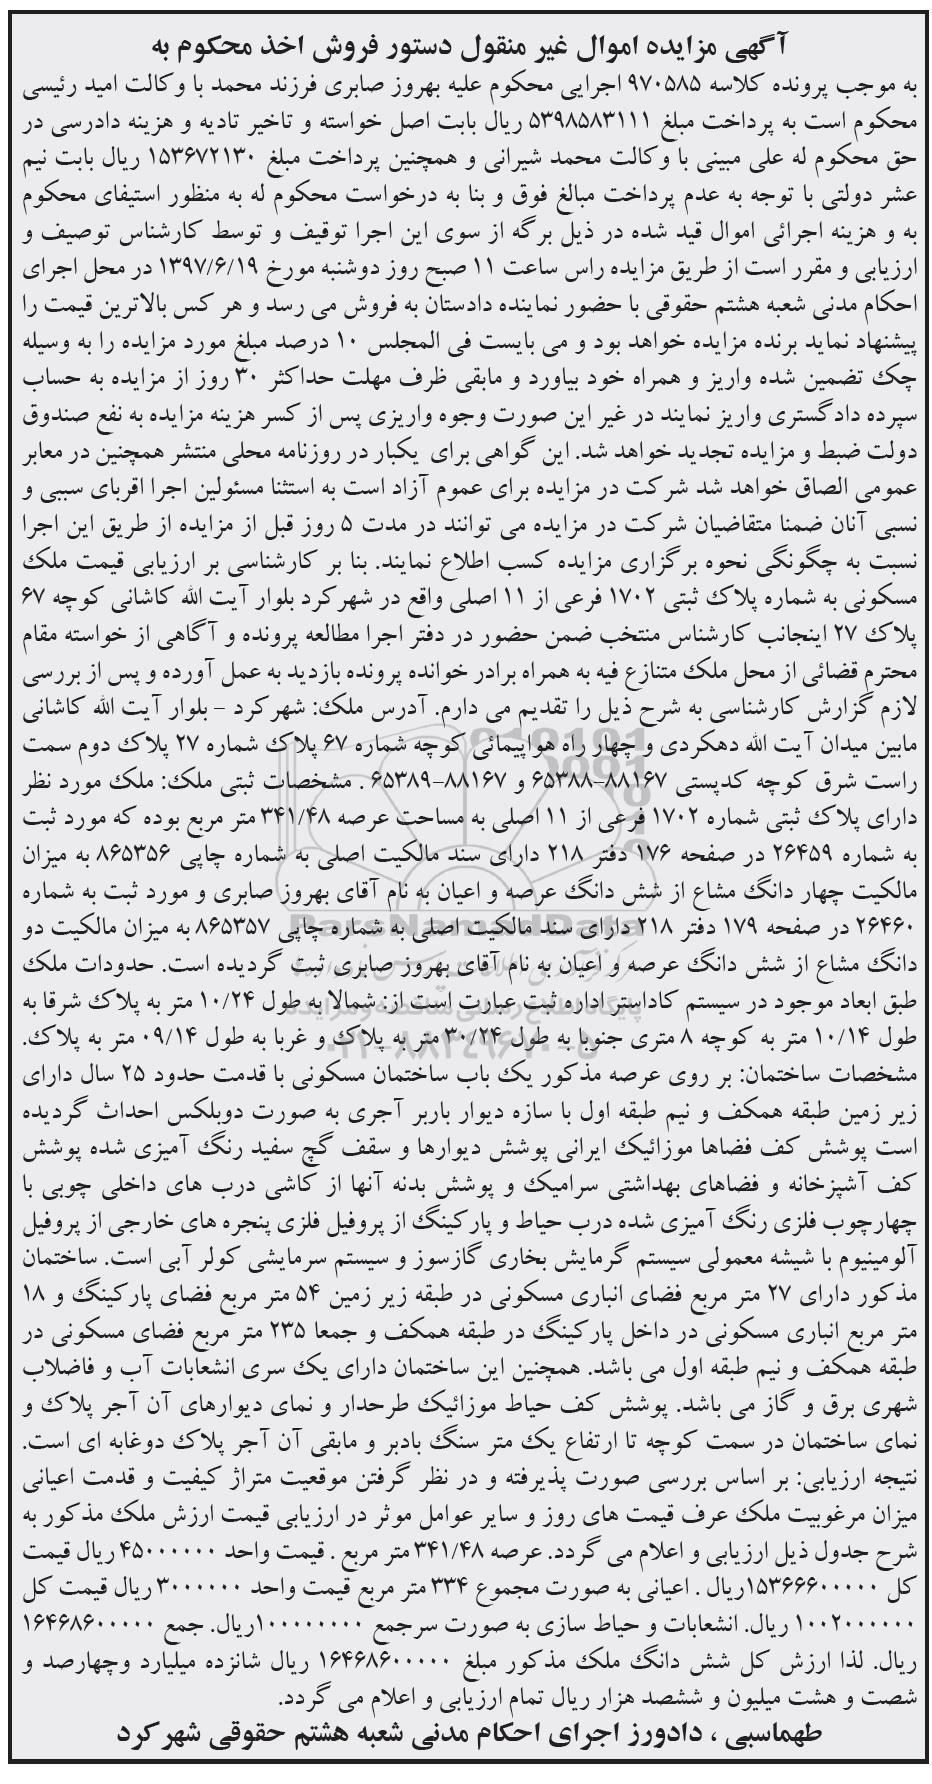 آگهی مزایده اموال غیر منقول دستور فروش اخذ محکوم به
به موجب پرونده کلاسه ۹۷۰۵۸۵ اجرایی محکوم علیه بهروز صابری فرزند محمد با وکالت امید رئیسی
محکوم است به پرداخت مبلغ ۵۳۹۸۵۸۳۱۱۱ ریال بابت اصل خواسته و تاخیر تادیه و هزینه دادرسی در
حق محکوم له علی مبینی با وکالت محمد شیرانی و همچنین پرداخت مبلغ ۱۵۳۶۷۲۱۳۰ ریال بابت نیم
عشر دولتی با توجه به عدم پرداخت مبالغ فوق و بنا به درخواست محکوم له به منظور استیفای محکوم
به و هزینه اجرائی اموال قید شده در ذیل برگه از سوی این اجرا توقیف و توسط کارشناس توصیف و
ارزیابی و مقرر است از طریق مزایده راس ساعت ۱۱ صبح روز دوشنبه مورخ ۱۳۹۷/۶/۱۹ در محل اجرای
احکام مدنی شعبه هشتم حقوقی با حضور نماینده دادستان به فروش می رسد و هر کس بالاترین قیمت را
پیشنهاد نماید برنده مزایده خواهد بود و می بایست فی المجلس ۱۰ درصد مبلغ مورد مزایده را به وسیله
چک تضمین شده واریز و همراه خود بیاورد و مابقی ظرف مهلت حداکثر ۳۰ روز از مزایده به حساب
سپرده دادگستری واریز نمایند در غیر این صورت وجوه واریزی پس از کسر هزینه مزایده به نفع صندوق
دولت ضبط و مزایده تجدید خواهد شد. این گواهی برای یکبار در روزنامه محلی منتشر همچنین در معابر
عمومی الصاق خواهد شد شرکت در مزایده برای عموم آزاد است به استثنا مسئولین اجرا اقربای سببی و
نسبی آنان ضمنا متقاضیان شرکت در مزایده می توانند در مدت ۵ روز قبل از مزایده از طریق این اجرا
نسبت به چگونگی نحوه برگزاری مزایده کسب اطلاع نمایند. بنا بر کارشناسی بر ارزیابی قیمت ملک
مسکونی به شماره پلاک ثبتی ۱۷۰۲ فرعی از ۱۱ اصلی واقع در شهرکرد بلوار آیت الله کاشانی کوچه ۶۷
پلاک ۲۷ اینجانب کارشناس منتخب ضمن حضور در دفتر اجرا مطالعه پرونده و آگاهی از خواسته مقام
محترم قضائی از محل ملک متنازع فیه به همراه برادر خوانده پرونده بازدید به عمل آورده و پس از بررسی
لازم گزارش کارشناسی به شرح ذیل را تقدیم می دارم. آدرس ملک: شهرکرد – بلوار آیت الله کاشانی
مابین میدان آیت الله دهکردی و چهار راه هواپیمائی کوچه شماره ۶۷ پلاک شماره ۲۷ پلاک دوم سمت
راست شرق کوچه کدپستی ۸۸۱۶۷-۶۵۳۸۸ و ۸۸۱۶۷-۶۵۳۸۹ . مشخصات ثبتی ملک: ملک مورد نظر
دارای پلاک ثبتی شماره ۱۷۰۲ فرعی از ۱۱ اصلی به مساحت عرصه ۳۴۱/۴۸ متر مربع بوده که مورد ثبت
به شماره ۲۶۴۵۹ در صفحه ۱۷۶ دفتر ۲۱۸ دارای سند مالکیت اصلی به شماره چاپی ۸۶۵۳۵۶ به میزان
مالکیت چهار دانگ مشاع از شش دانگ عرصه و اعیان به نام آقای بهروز صابری و مورد ثبت به شماره
۲۶۴۶۰ در صفحه ۱۷۹ دفتر ۲۱۸ دارای سند مالکیت اصلی به شماره چاپی ۸۶۵۳۵۷ به میزان مالکیت دو
دانگ مشاع از شش دانگ عرصه و اعیان به نام آقای بهروز صابری ثبت گردیده است. حدودات ملک
طبق ابعاد موجود در سیستم کاداستر اداره ثبت عبارت است از: شمالا به طول ۱۰/۲۴ متر به پلاک شرقا به
طول ۱۰/۱۴ متر به کوچه ۸ متری جنوبا به طول ۳۰/۲۴ متر به پلاک و غربا به طول ۰۹/۱۴ متر به پلاک.
مشخصات ساختمان: بر روی عرصه مذکور یک باب ساختمان مسکونی با قدمت حدود ۲۵ سال دارای
زیر زمین طبقه همکف و نیم طبقه اول با سازه دیوار باربر آجری به صورت دوبلکس احداث گردیده
است پوشش کف فضاها موزائیک ایرانی پوشش دیوارها و سقف گچ سفید رنگ آمیزی شده پوشش
کف آشپزخانه و فضاهای بهداشتی سرامیک و پوشش بدنه آنها از کاشی درب های داخلی چوبی با
چهارچوب فلزی رنگ آمیزی شده درب حیاط و پارکینگ از پروفیل فلزی پنجره های خارجی از پروفیل
آلومینیوم با شیشه معمولی سیستم گرمایش بخاری گازسوز و سیستم سرمایشی کولر آبی است. ساختمان
مذکور دارای ۲۷ متر مربع فضای انباری مسکونی در طبقه زیر زمین ۵۴ متر مربع فضای پارکینگ و ۱۸
متر مربع انباری مسکونی در داخل پارکینگ در طبقه همکف و جمعا ۲۳۵ متر مربع فضای مسکونی در
طبقه همکف و نیم طبقه اول می باشد. همچنین این ساختمان دارای یک سری انشعابات آب و فاضلاب
شهری برق و گاز می باشد. پوشش کف حیاط موزائیک طرحدار و نمای دیوارهای آن آجر پلاک و
نمای ساختمان در سمت کوچه تا ارتفاع یک متر سنگ بادبر و مابقی آن آجر پلاک دوغابه ای است.
نتیجه ارزیابی: بر اساس بررسی صورت پذیرفته و در نظر گرفتن موقعیت متراژ کیفیت و قدمت اعیانی
میزان مرغوبیت ملک عرف قیمت های روز و سایر عوامل موثر در ارزیابی قیمت ارزش ملک مذکور به
شرح جدول ذیل ارزیابی و اعلام می گردد. عرصه ۳۴۱/۴۸ متر مربع . قیمت واحد ۴۵۰۰۰۰۰۰ ریال قیمت
کل ۱۵۳۶۶۶۰۰۰۰۰ریال . اعیانی به صورت مجموع ۳۳۴ متر مربع قیمت واحد ۳۰۰۰۰۰۰ ریال قیمت کل
۱۰۰۲۰۰۰۰۰۰ ریال. انشعابات و حیاط سازی به صورت سرجمع ۱۰۰۰۰۰۰۰۰ریال. جمع ۱۶۴۶۸۶۰۰۰۰۰
ریال. لذا ارزش کل شش دانگ ملک مذکور مبلغ ۱۶۴۶۸۶۰۰۰۰۰ ریال شانزده میلیارد وچهارصد و
شصت و هشت میلیون و ششصد هزار ریال تمام ارزیابی و اعلام می گردد.
طهماسبی ، دادورز اجرای احکام مدنی شعبه هشتم حقوقی شهرکرد
ParsNamadData